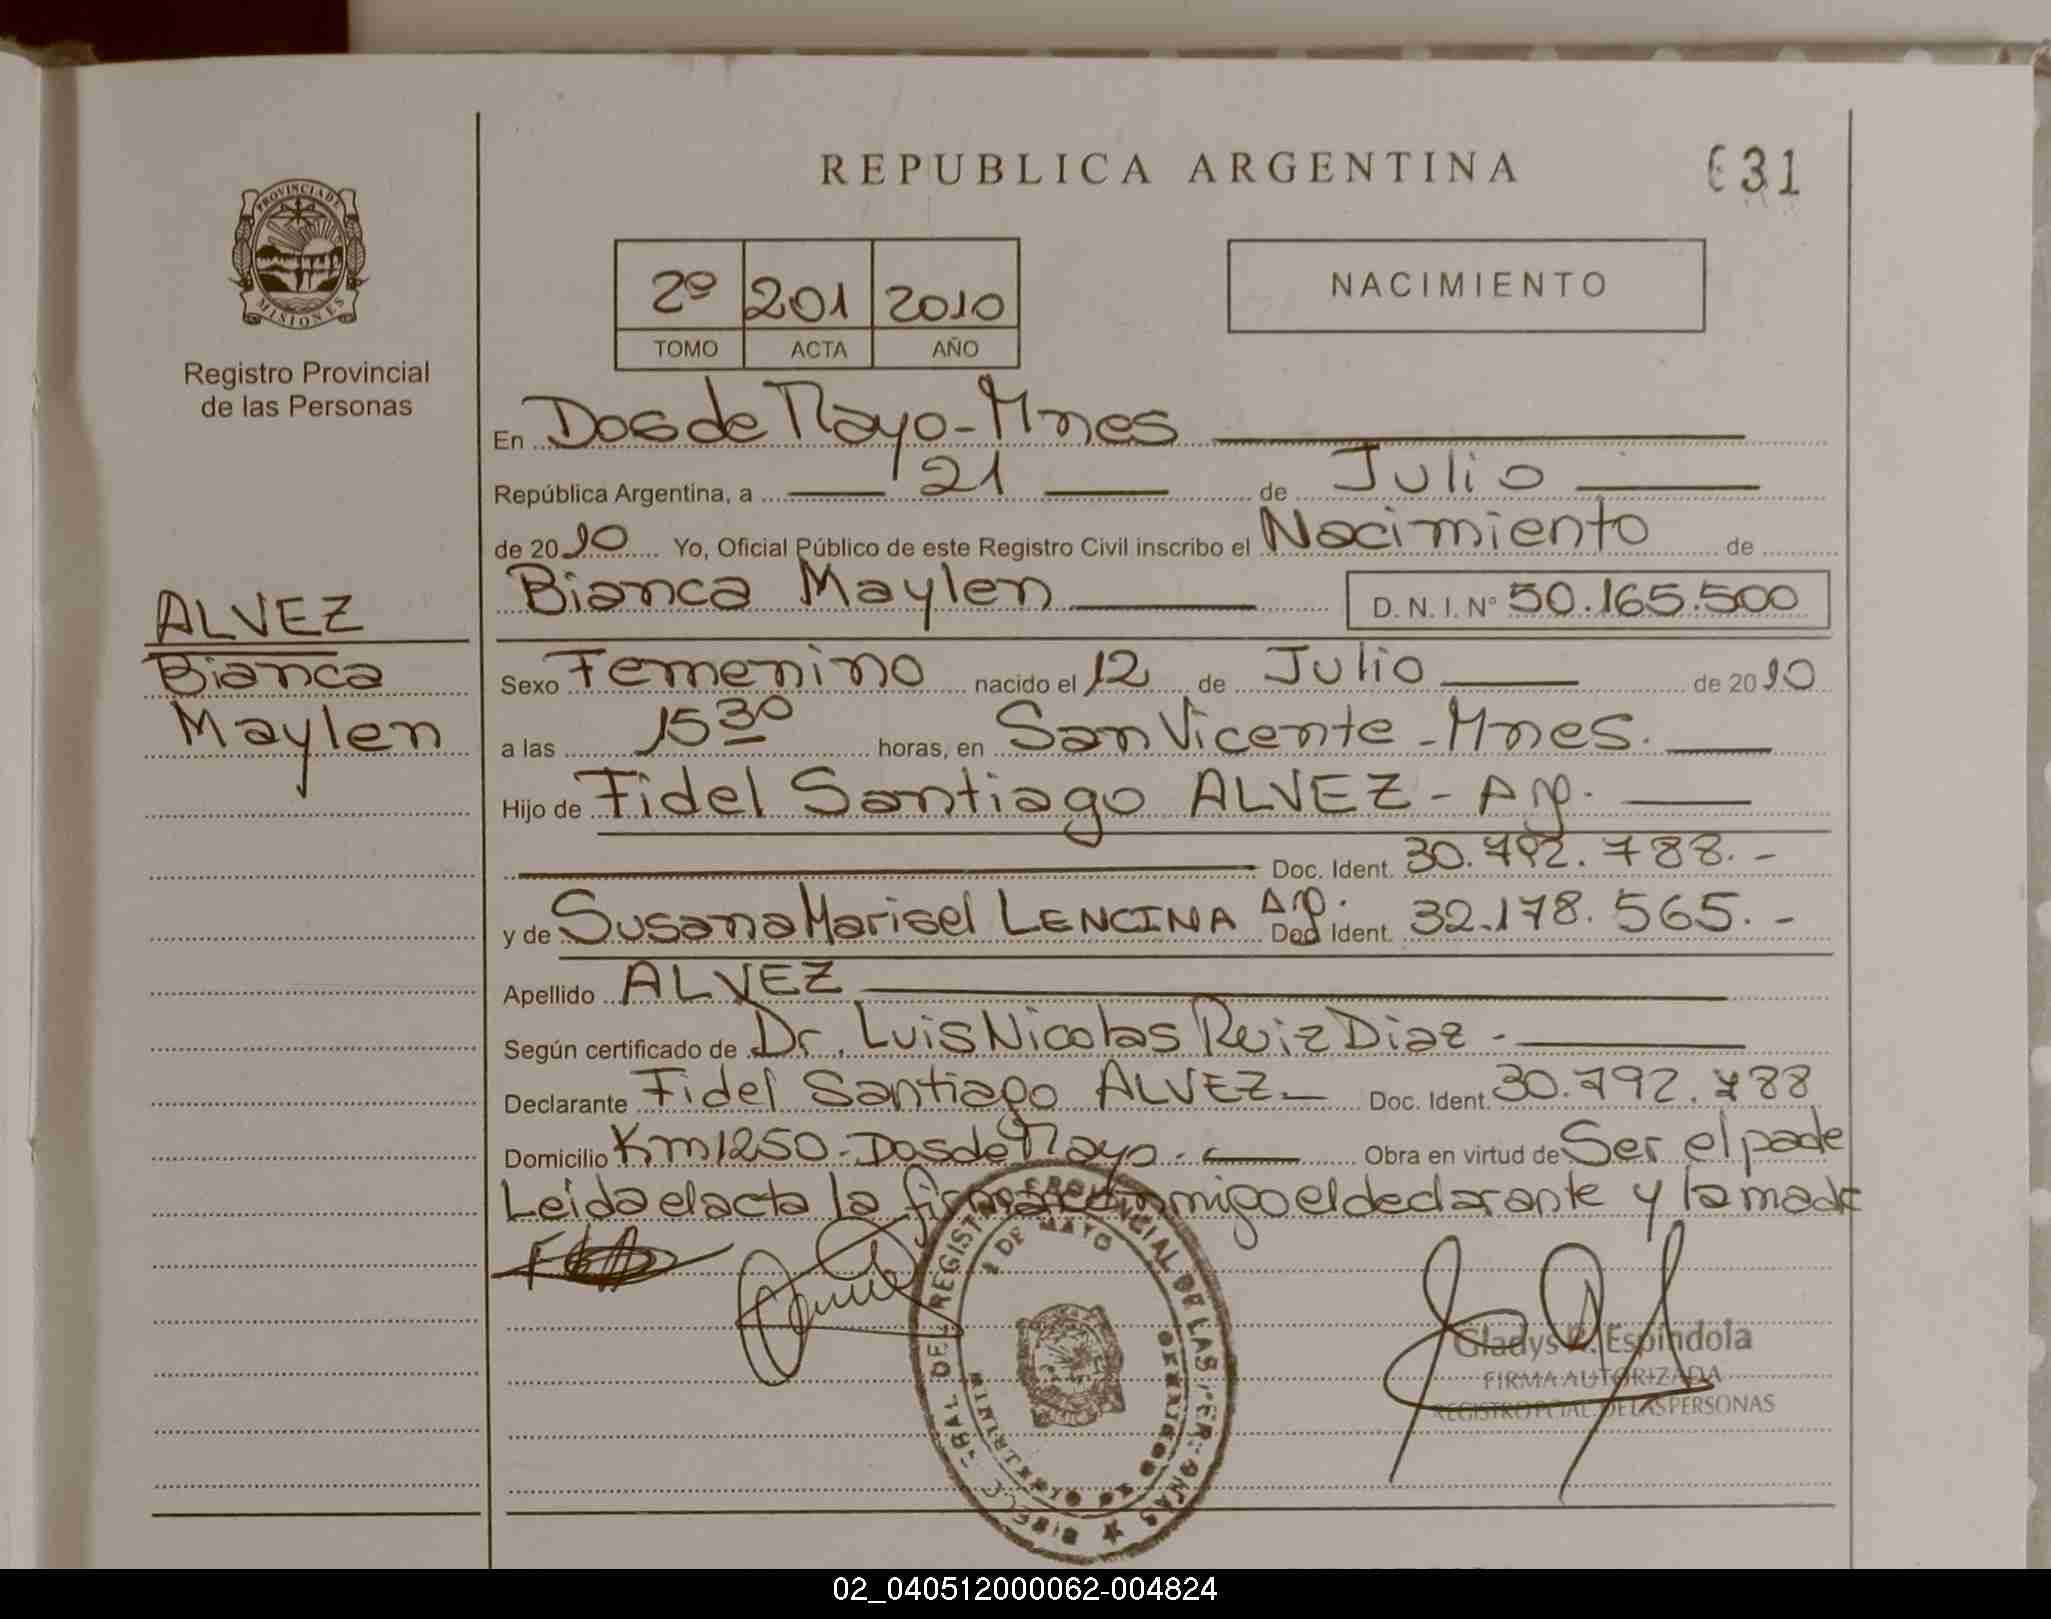 REPUBLICA ARGENTINA
631
PROVINCIA DE
MISIONES
Registro Provincial
de las Personas
2º 201 2010
TOMO ACTA AÑO
NACIMIENTO
En Dos de Mayo - Mnes
República Argentina, a 21 de Julio
de 2010 Yo, Oficial Público de este Registro Civil inscribo el Nacimiento de
Bianca Maylen D.N.I. Nº 50.165.500
ALVEZ
Bianca
Maylen
Sexo Femenino nacido el 12 de Julio de 2010
a las 15 30 horas, en San Vicente - Mnes.
Hijo de Fidel Santiago ALVEZ - Arg.
Doc. Ident. 30.792.788.-
y de Susana Marisel LENCINA Arg. Doc. Ident. 32.178.565.-
Apellido ALVEZ
Según certificado de Dr. Luis Nicolas Ruiz Diaz -
Declarante Fidel Santiago ALVEZ - Doc. Ident. 30.792.788
Domicilio Km 1250 - Dos de Mayo.- Obra en virtud de Ser el padre
Leida el acta la firman conmigo el declarante y la madre
REGISTRO PROVINCIAL DE LAS PERSONAS
2 DE MAYO
Gladys R. Espindola
FIRMA AUTORIZADA
REGISTRO PCIAL. DE LAS PERSONAS
02_040512000062-004824